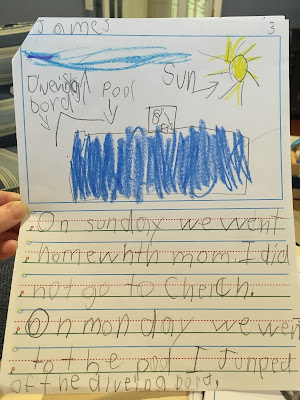 James
3
Diveing Sun
bord Pool
On sunday we went
home whth mom. I did
not go to Cherch.
On monday we went
to the pool I Jumped
of the diveing bord.